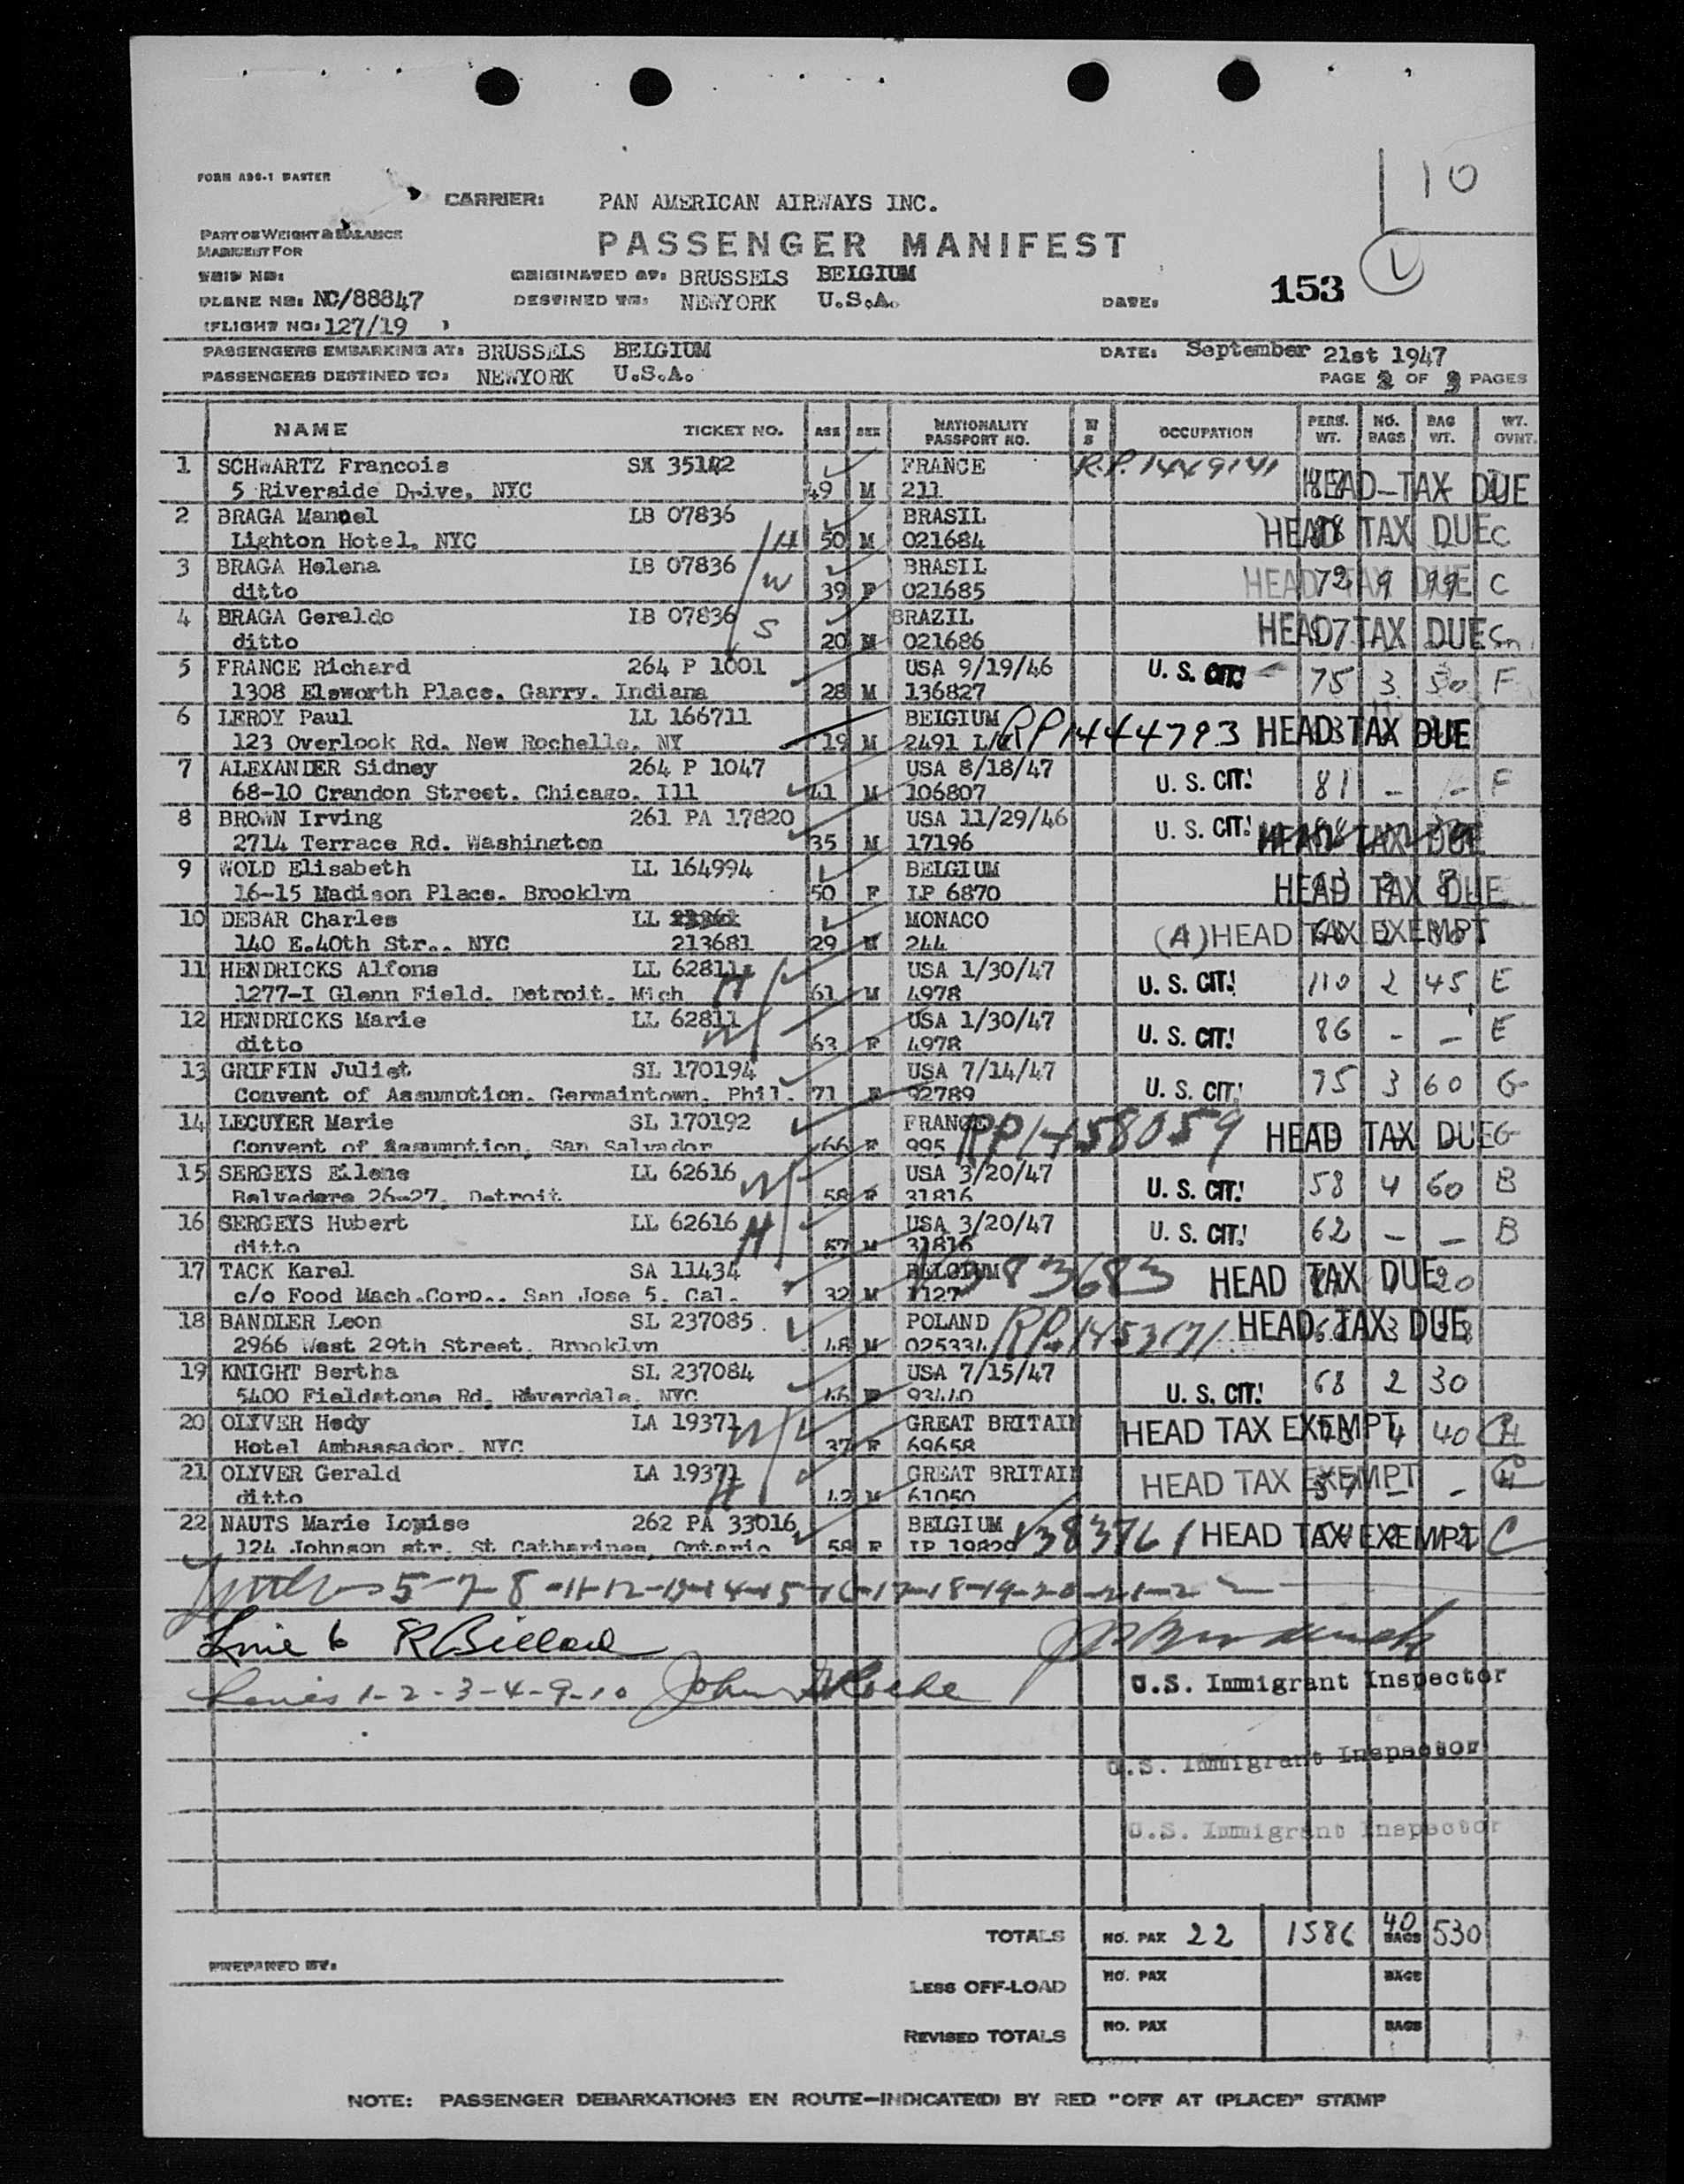 10
FORM ADC-1 MASTER
CARRIER: PAN AMERICAN AIRWAYS INC.
PART OF WEIGHT & BALANCE
MANIFEST FOR
PASSENGER MANIFEST
TRIP NO:
ORIGINATED AT: BRUSSELS BELGIUM
153
PLANE NO: NC/88847
DESTINED TO: NEWYORK U.S.A.
DATE:
(FLIGHT NO: 127/19 )
PASSENGERS EMBARKING AT: BRUSSELS BELGIUM
DATE: September 21st 1947
PASSENGERS DESTINED TO: NEWYORK U.S.A.
PAGE 2 OF 3 PAGES
NAME TICKET NO. AGE SEX NATIONALITY PASSPORT NO. M S OCCUPATION PERS. WT. NO. BAGS BAG WT. WT. OVNT.
1 SCHWARTZ Francois SX 35142 FRANCE R.P. 1449141
5 Riverside Drive, NYC 49 M 211 HEAD-TAX DUE
2 BRAGA Manoel LB 07836 BRASIL
Lighton Hotel, NYC H 50 M 021684 HEAD TAX DUE C
3 BRAGA Helena LB 07836 BRASIL
ditto W 39 F 021685 HEAD TAX DUE 72 9 99 C
4 BRAGA Geraldo LB 07836 BRAZIL
ditto S 20 M 021686 HEAD TAX DUE
5 FRANCE Richard 264 P 1001 USA 9/19/46 U. S. CIT!
1308 Elsworth Place, Garry, Indiana 28 M 136827 75 3 50 F
6 LEROY Paul LL 166711 BELGIUM
123 Overlook Rd. New Rochelle, NY 19 M 2491 RP1444793 HEAD TAX DUE
7 ALEXANDER Sidney 264 P 1047 USA 8/18/47
68-10 Crandon Street, Chicago, Ill 41 M 106807 U. S. CIT! 81 - - F
8 BROWN Irving 261 PA 17820 USA 11/29/46
2714 Terrace Rd. Washington 35 M 17196 U. S. CIT! HEAD TAX DUE
9 WOLD Elisabeth LL 164994 BELGIUM
16-15 Madison Place, Brooklyn 50 F LP 6870 HEAD TAX DUE
10 DEBAR Charles LL MONACO
140 E.40th Str., NYC 213681 29 M 244 (A) HEAD TAX EXEMPT
11 HENDRICKS Alfons LL 62811 USA 1/30/47
1277-I Glenn Field, Detroit, Mich H 61 M 4978 U. S. CIT! 110 2 45 E
12 HENDRICKS Marie LL 62811 USA 1/30/47
ditto W 63 F 4978 U. S. CIT! 86 - - E
13 GRIFFIN Juliet SL 170194 USA 7/14/47
Convent of Assumption, Germaintown, Phil. 71 F 92789 U. S. CIT! 75 3 60 G
14 LECUYER Marie SL 170192 FRANCE
Convent of Assumption, San Salvador 66 F 995 RP1458059 HEAD TAX DUE G
15 SERGEYS Eilene LL 62616 USA 3/20/47
Belvedere 26-27, Detroit W 58 F 31816 U. S. CIT! 58 4 60 B
16 SERGEYS Hubert LL 62616 USA 3/20/47
ditto H 57 M 31816 U. S. CIT! 62 - - B
17 TACK Karel SA 11434 BELGIUM
c/o Food Mach.Corp., San Jose 5, Cal. 32 M 1127 V383683 HEAD TAX DUE 20
18 BANDLER Leon SL 237085 POLAND
2966 West 29th Street, Brooklyn 48 M 025334 RP.1453171 HEAD TAX DUE
19 KNIGHT Bertha SL 237084 USA 7/15/47
5400 Fieldstone Rd, Riverdale, NYC 46 F 93440 U. S. CIT! 68 2 30
20 OLYVER Hedy LA 19371 GREAT BRITAIN
Hotel Ambassador, NYC W 37 F 69658 HEAD TAX EXEMPT 4 40
21 OLYVER Gerald LA 19371 GREAT BRITAIN
ditto H 42 M 61050 HEAD TAX EXEMPT -
22 NAUTS Marie Louise 262 PA 33016 BELGIUM
124 Johnson str, St Catharines, Ontario 58 F LP 19829 V383761 HEAD TAX EXEMPT C
5-7-8-11-12-13-14-15-16-17-18-19-20-21-22
Line 6 R Billard
Lines 1-2-3-4-9-10 John Roche
U.S. Immigrant Inspector
U.S. Immigrant Inspector
U.S. Immigrant Inspector
TOTALS NO. PAX 22 1586 40 BAGS 530
PREPARED BY:
LESS OFF-LOAD NO. PAX BAGS
REVISED TOTALS NO. PAX BAGS
NOTE: PASSENGER DEBARKATIONS EN ROUTE—INDICATE(D) BY RED "OFF AT (PLACE)" STAMP